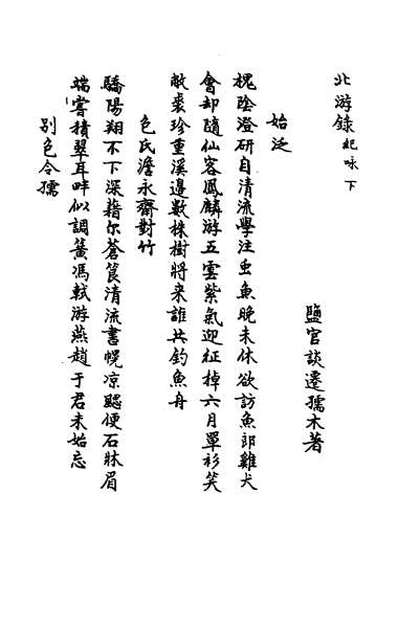 北游錄 紀咏下
鹽官談遷孺木著
始泛
槐陰澄研自清流學注虫魚晚未休欲訪魚郎雞犬
會却隨仙客鳳麟游五雲紫氣迎征掉六月單衫笑
敝裘珍重溪邊數株樹將来誰共釣魚舟
色氏澹永齋對竹
驕陽翔不下深藉尔蒼筤清流書幌凉颸便石牀眉
端嘗積翠耳畔似調簧馮軾游燕趙于君未始忘
别色令孺